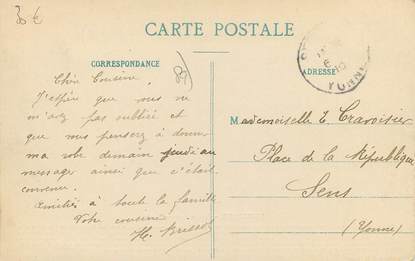 CARTE POSTALE
CORRESPONDANCE
ADRESSE
YONNE
Chère Cousine
J'espère que vous ne
m'avez pas oublié et
que vous penserez à donner
ma robe demain jeudi au
messager ainsi que c'était
convenu
Amitiés à toute la famille
Votre cousine
Brissot
Mademoiselle E Travoisier
Place de la République
Sens
(Yonne)